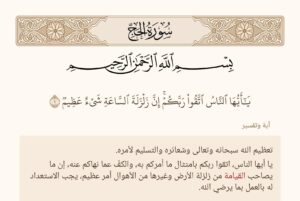 سُورَةُ الحَجِّ
بِسْمِ اللَّهِ الرَّحْمَٰنِ الرَّحِيمِ
يَٰٓأَيُّهَا ٱلنَّاسُ ٱتَّقُوا۟ رَبَّكُمْ ۚ إِنَّ زَلْزَلَةَ ٱلسَّاعَةِ شَىْءٌ عَظِيمٌ ١
آية وتفسير
تعظيم الله سبحانه وتعالى وشعائره والتسليم لأمره.
يا أيها الناس، اتقوا ربكم بامتثال ما أمركم به، والكف عما نهاكم عنه، إن ما
يصاحب القيامة من زلزلة الأرض وغيرها من الأهوال أمر عظيم، يجب الاستعداد
له بالعمل بما يرضي الله.